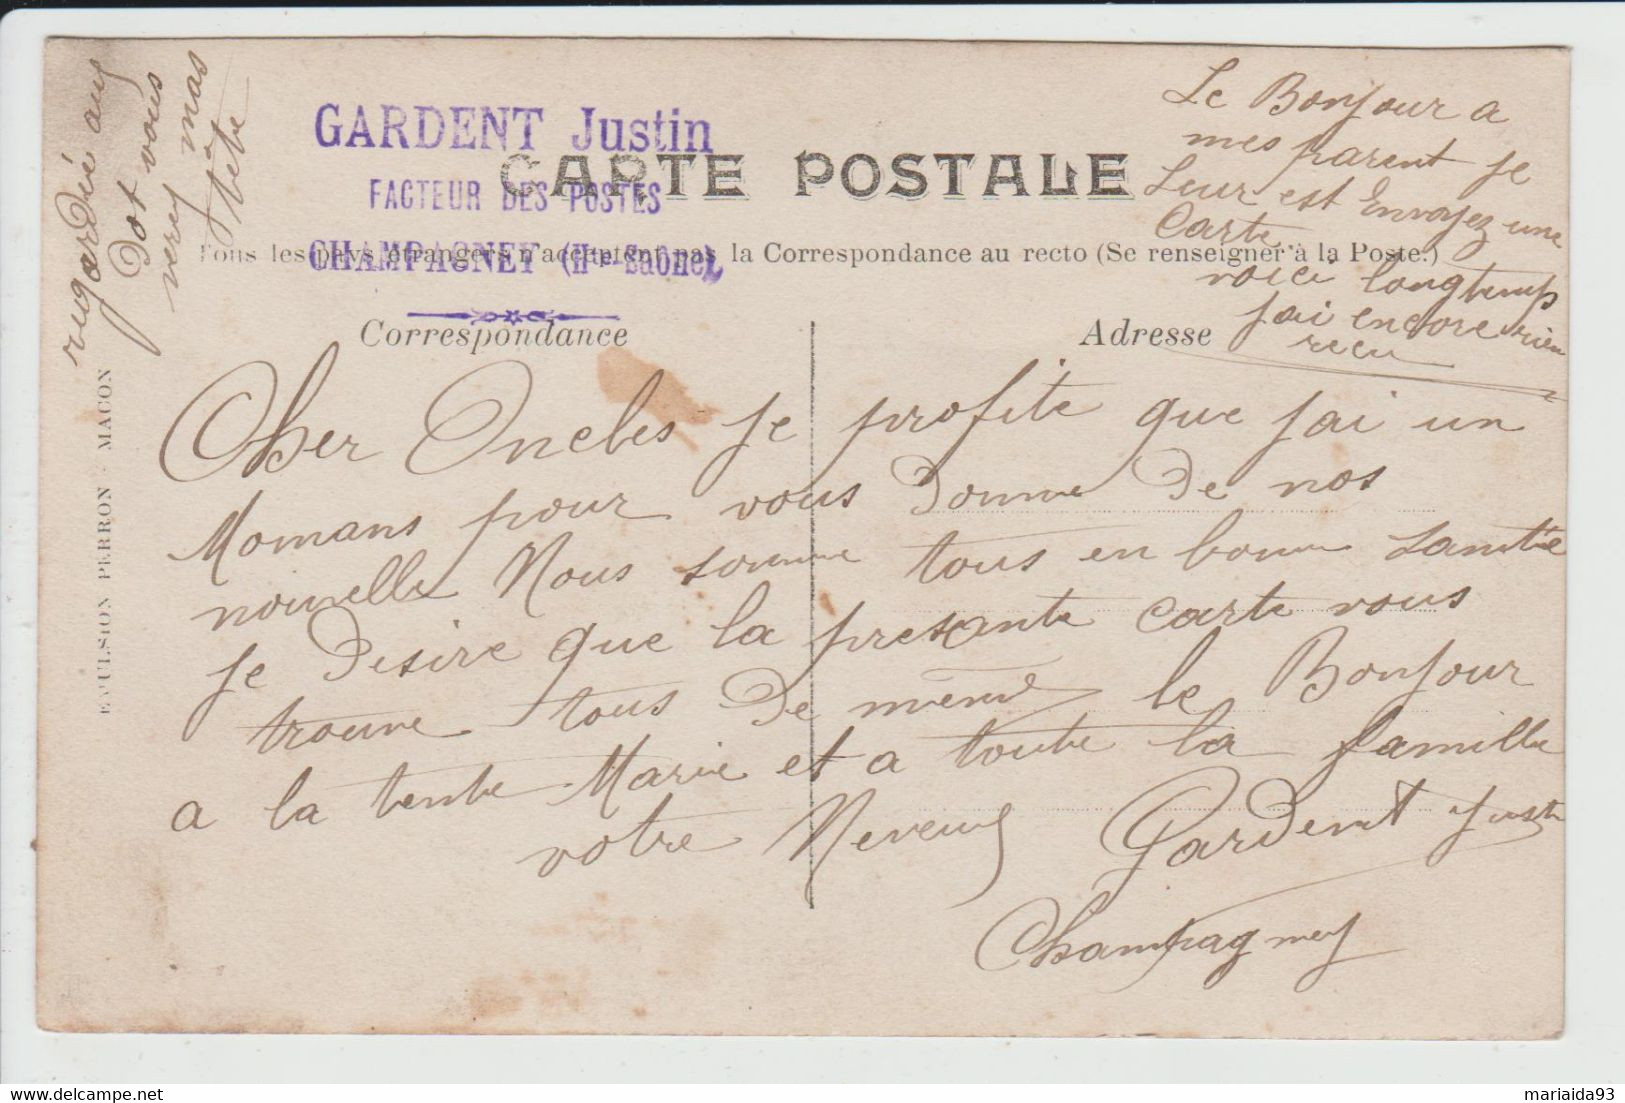 GARDENT Justin
FACTEUR DES POSTES
CHAMPAGNEY (Hte-Saône)
CARTE POSTALE
Tous les pays étrangers n'acceptent pas la Correspondance au recto (Se renseigner à la Poste.)
Correspondance
Adresse
EMULSION PERRON - MACON
rugardié aus
Dot vous
verez mas
tete
Le Bonjour a
mes parent je
Leur est Envoyez une
Carte
voici longtemps
jai encore rien
recu
Cher Oncles je profite que jai un
Momans pour vous Donne De nos
nouvelle Nous somme tous en bonne santée
je Desire que la presante carte vous
trouve tous De meme le Bonjour
a la tente Marie et a toute la famille
votre Neveus Gardent Justin
Champagney
mariaida93